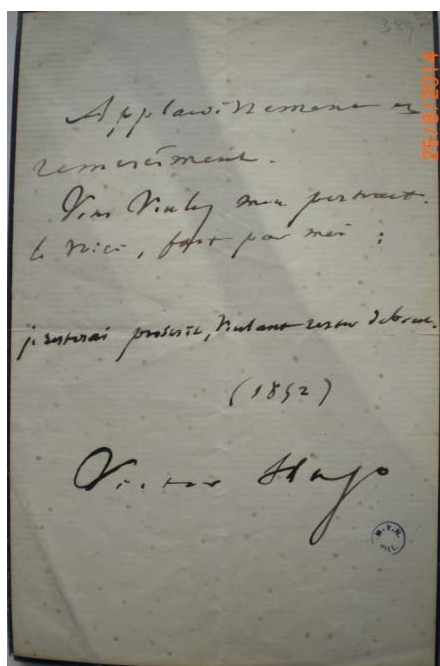 389
25/8/2014
Applaudissement et
remerciment.
Vous voulez mon portrait.
le voici, fait par moi :
je resterai proscrit, voulant rester debout.
(1852)
Victor Hugo
M.V.H.